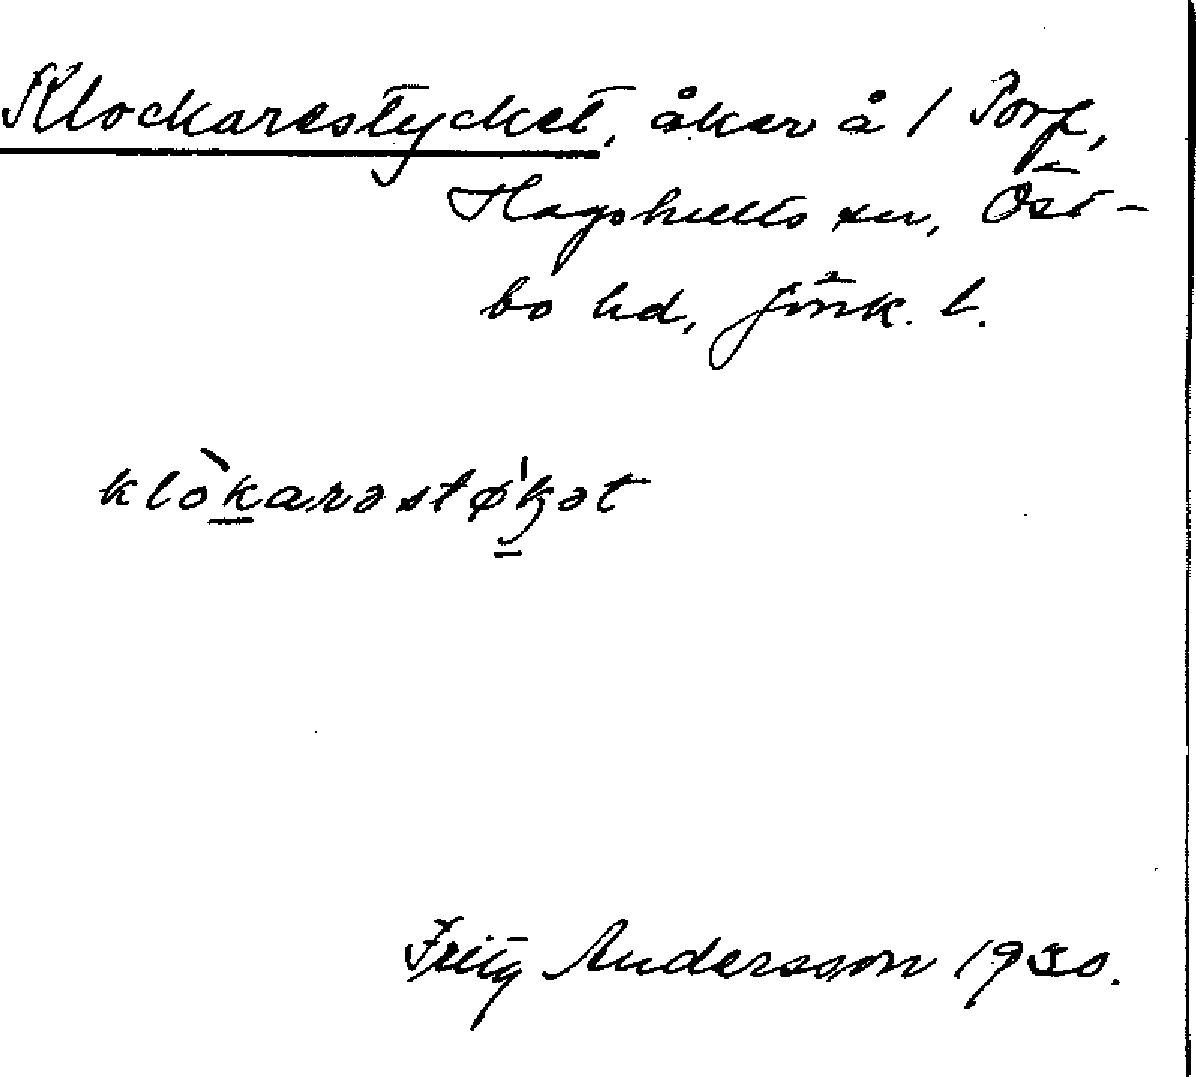 Klockarestycket, åker å 1 Torp,
Hagshults sn, Öst-
bo hd, Jönk. l.
klòkarəstø'kət
Fritz Andersson 1930.